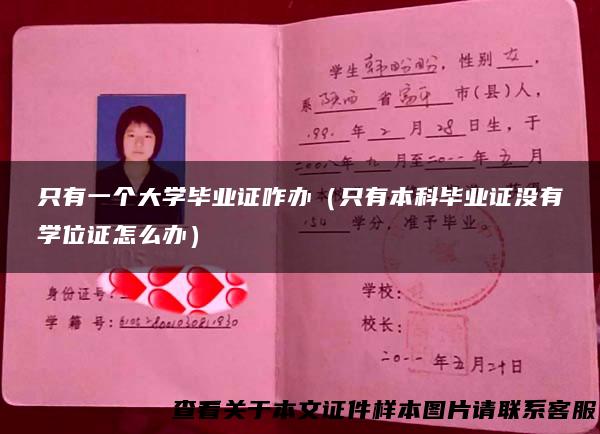 学生韩盼盼，性别女，
系陕西省富平市(县)人，
199 年2月28日生，于
二〇〇八年九月至二〇一一年五月
只有一个大学毕业证咋办（只有本科毕业证没有
学位证怎么办）
154学分，准予毕业。
身份证号：
学籍号：
学校：
校长：
二〇一一年五月二十日
查看关于本文证件样本图片请联系客服